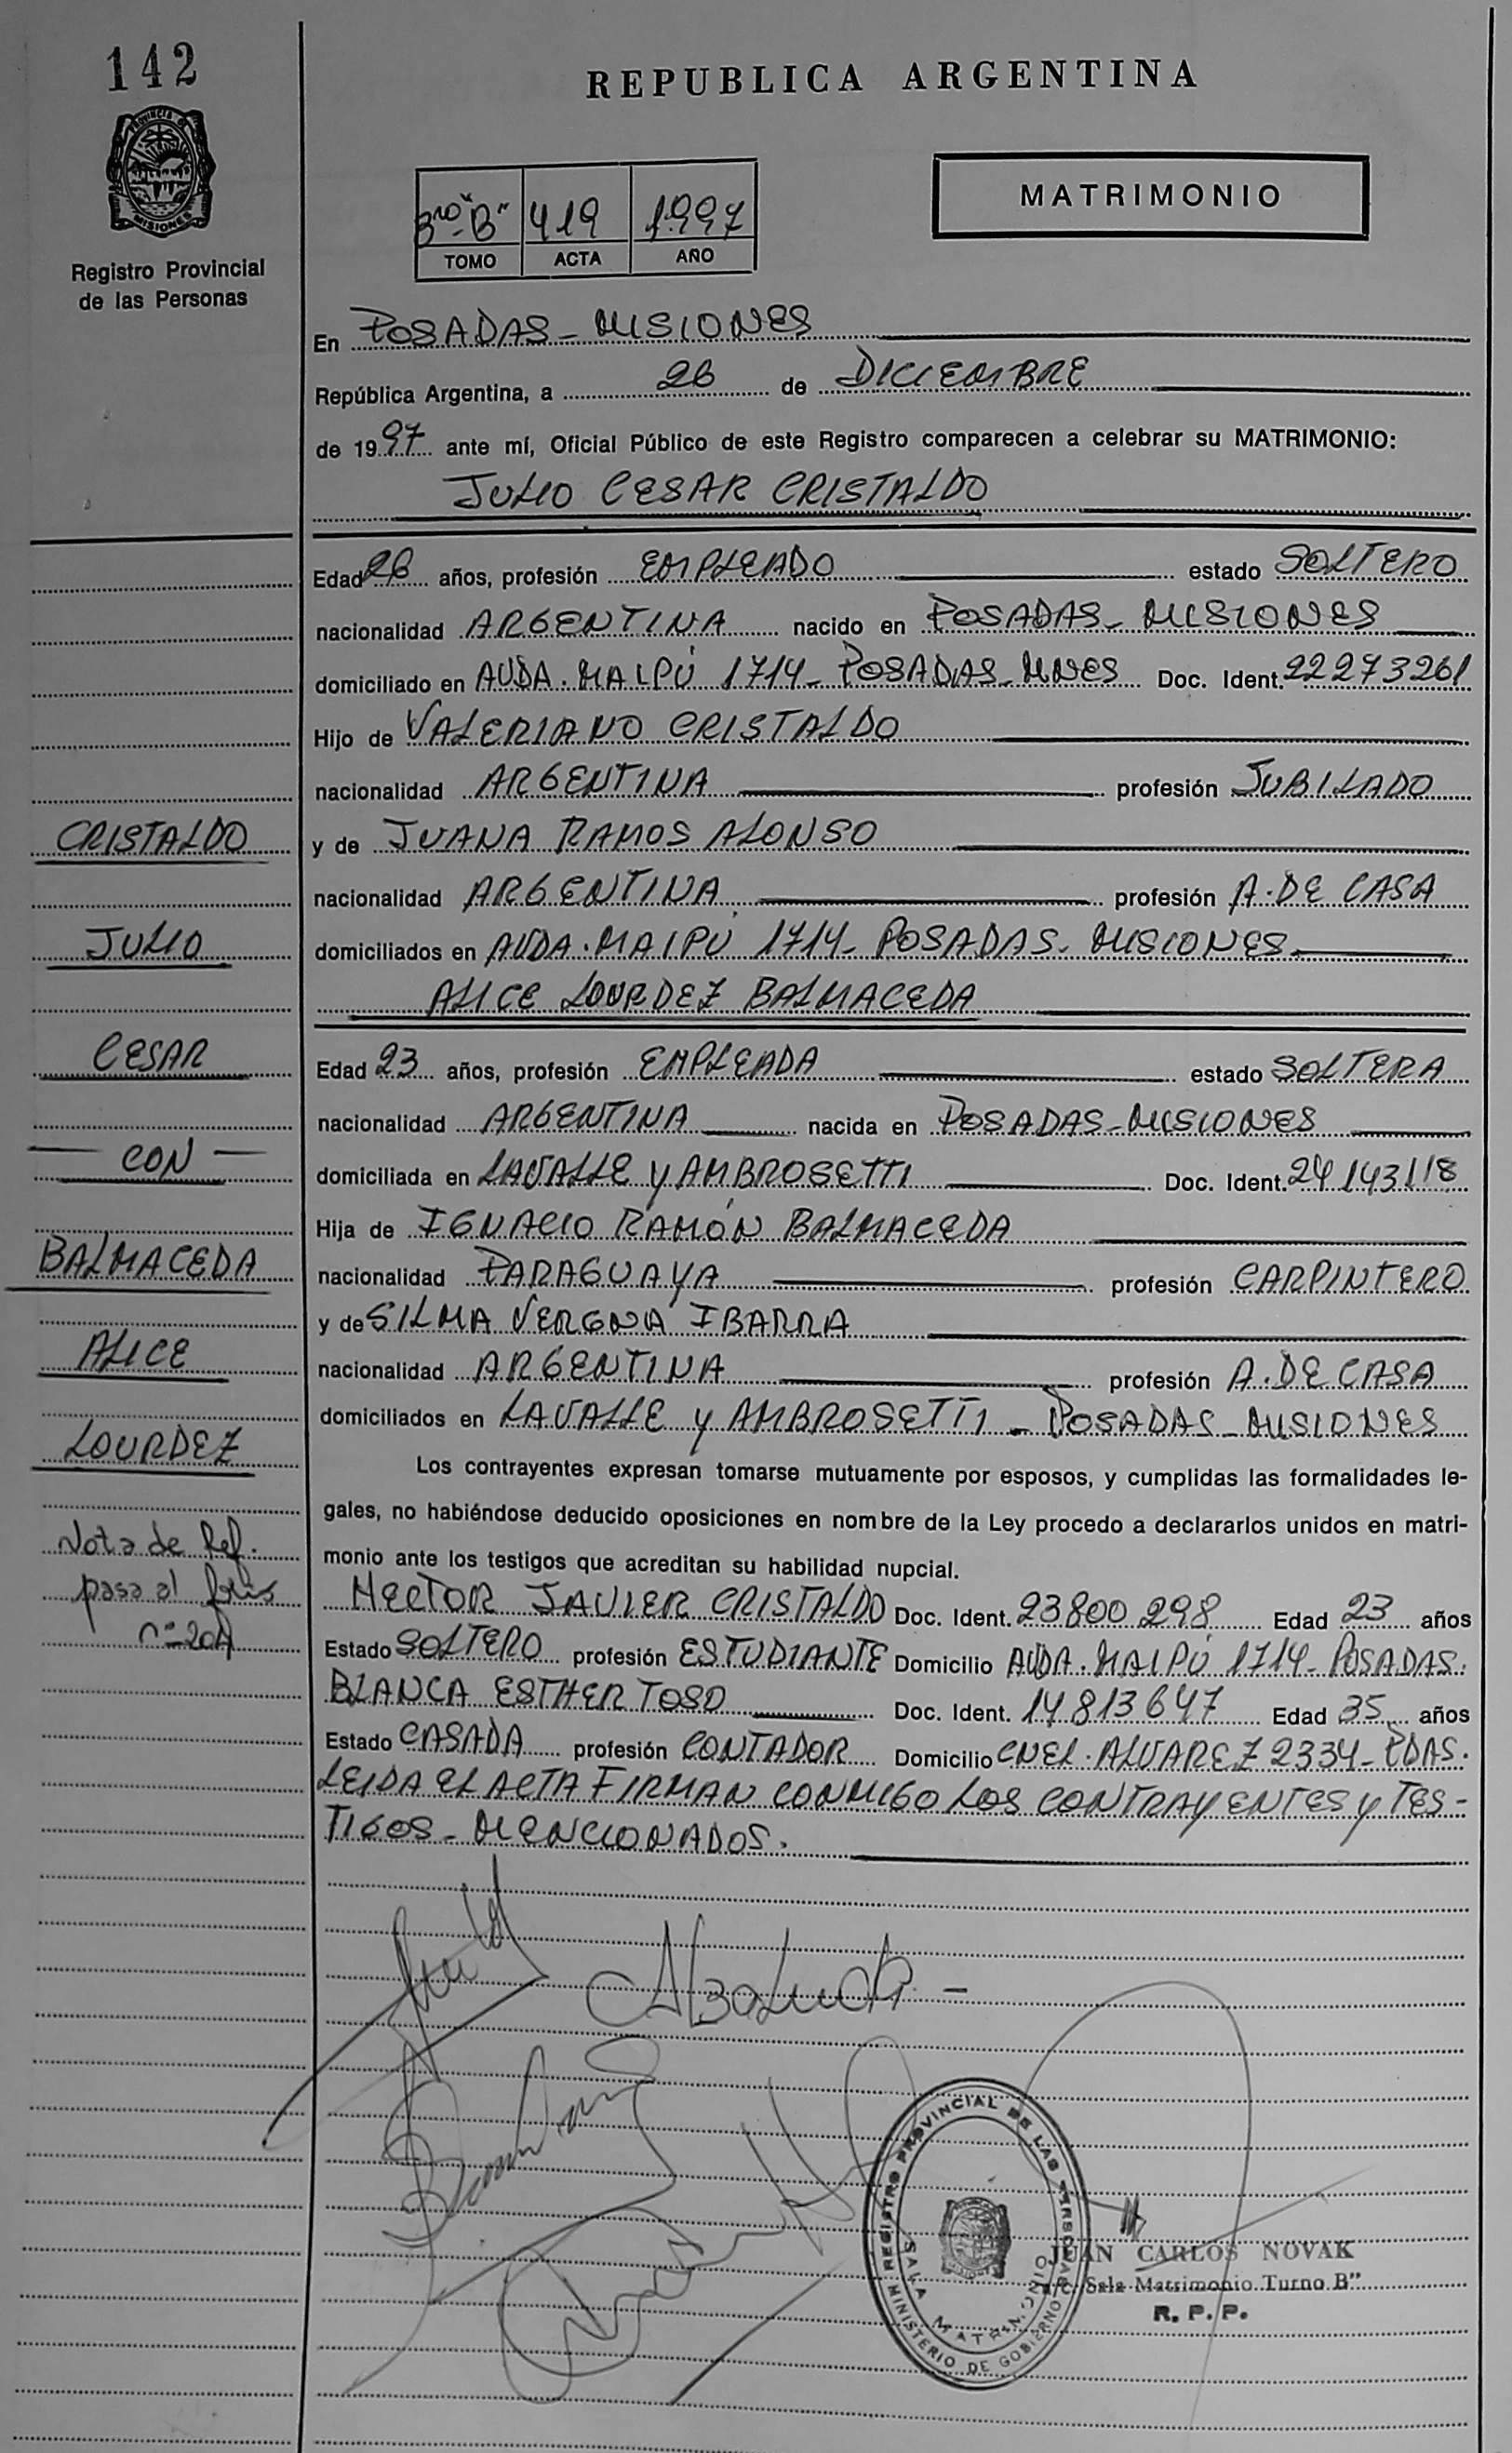 142
REPUBLICA ARGENTINA
PROVINCIA DE MISIONES
Registro Provincial
de las Personas
3ro "B" 419 1997
TOMO ACTA AÑO
MATRIMONIO
En POSADAS - MISIONES
República Argentina, a 26 de DICIEMBRE
de 1997 ante mí, Oficial Público de este Registro comparecen a celebrar su MATRIMONIO:
JULIO CESAR CRISTALDO
Edad 26 años, profesión EMPLEADO estado SOLTERO
nacionalidad ARGENTINA nacido en POSADAS - MISIONES
domiciliado en AVDA. MAIPÚ 1714 - POSADAS - MNES Doc. Ident. 22273261
Hijo de VALERIANO CRISTALDO
nacionalidad ARGENTINA profesión JUBILADO
y de JUANA RAMOS ALONSO
nacionalidad ARGENTINA profesión A. DE CASA
domiciliados en AVDA. MAIPÚ 1714 - POSADAS - MISIONES
ALICE LOURDEZ BALMACEDA
Edad 23 años, profesión EMPLEADA estado SOLTERA
nacionalidad ARGENTINA nacida en POSADAS - MISIONES
domiciliada en LAVALLE y AMBROSETTI Doc. Ident. 24143118
Hija de IGNACIO RAMÓN BALMACEDA
nacionalidad PARAGUAYA profesión CARPINTERO
y de SILMA VERGNA IBARRA
nacionalidad ARGENTINA profesión A. DE CASA
domiciliados en LAVALLE y AMBROSETTI - POSADAS - MISIONES
Los contrayentes expresan tomarse mutuamente por esposos, y cumplidas las formalidades le-
gales, no habiéndose deducido oposiciones en nombre de la Ley procedo a declararlos unidos en matri-
monio ante los testigos que acreditan su habilidad nupcial.
HECTOR JAVIER CRISTALDO Doc. Ident. 23800298 Edad 23 años
Estado SOLTERO profesión ESTUDIANTE Domicilio AVDA. MAIPÚ 1714 - POSADAS.
BLANCA ESTHER TOSO Doc. Ident. 14813647 Edad 35 años
Estado CASADA profesión CONTADOR Domicilio CNEL. ALVAREZ 2334 - PDAS.
LEIDA EL ACTA FIRMAN CONMIGO LOS CONTRAYENTES y TES-
TIGOS - MENCIONADOS.
CRISTALDO
JULIO
CESAR
- CON -
BALMACEDA
ALICE
LOURDEZ
Nota de Ref.
pasa al folio
nº 204
REGISTRO PROVINCIAL DE LAS PERSONAS
SALA MATRIMONIO
MINISTERIO DE GOBIERNO
JUAN CARLOS NOVAK
a/c. Sala Matrimonio Turno B"
R. P. P.